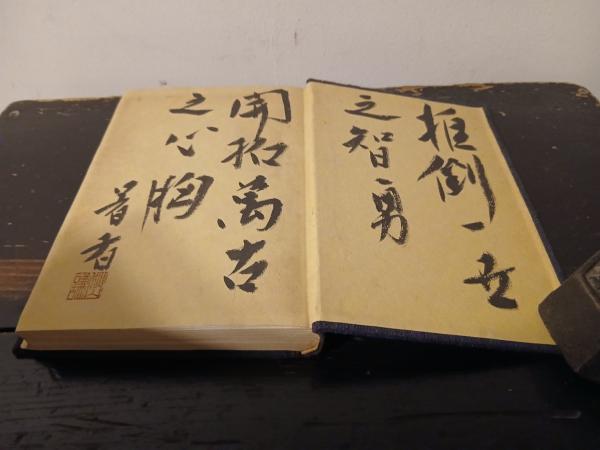 推倒一世
之智勇
開拓萬古
之心胸
著者